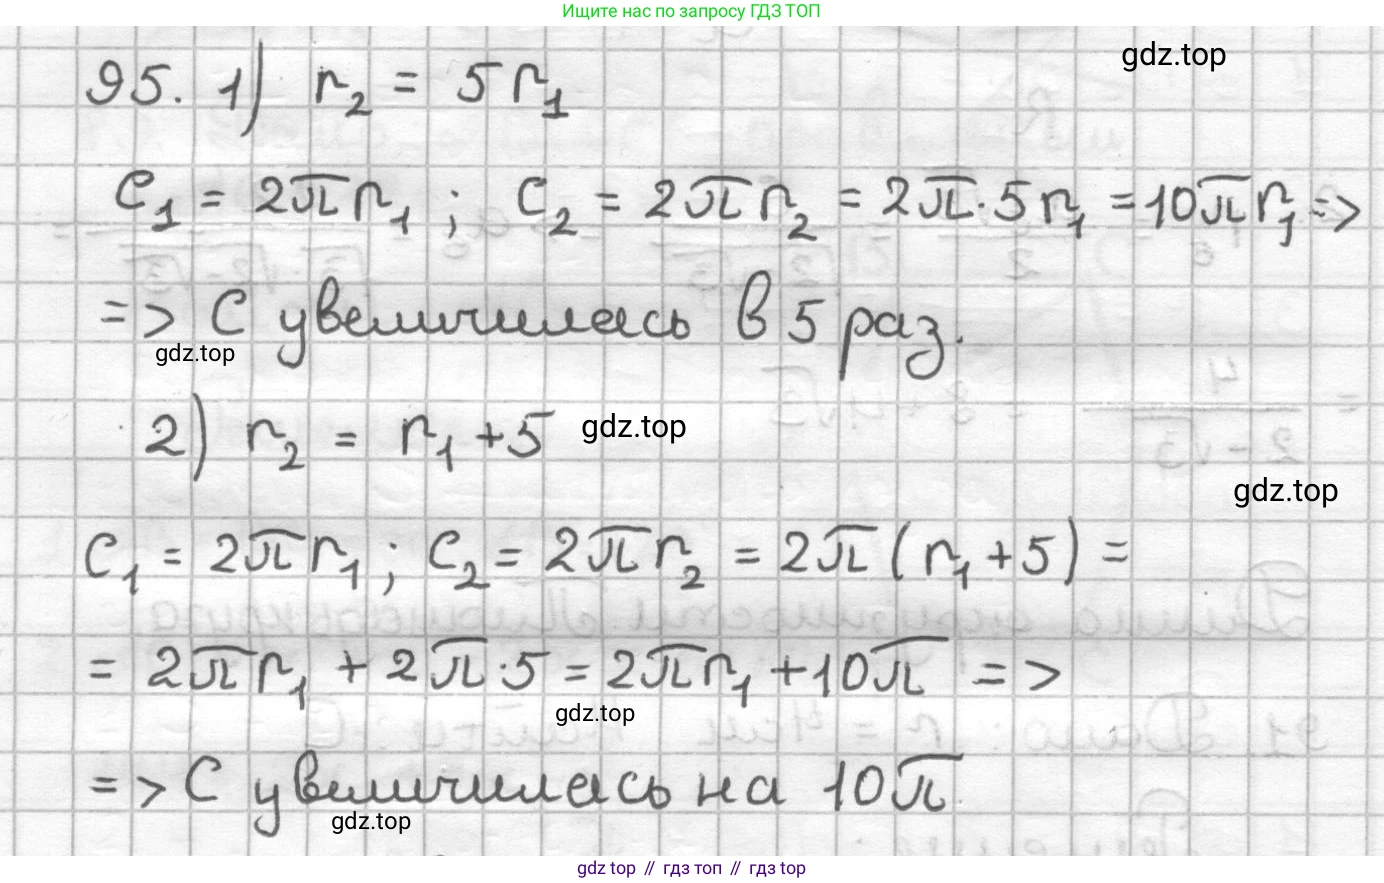 Ищите нас по запросу ГДЗ ТОП
gdz.top
95. 1) r₂ = 5r₁
C₁ = 2πr₁ ; C₂ = 2πr₂ = 2π·5r₁ = 10πr₁ =>
=> C увеличилась в 5 раз.
gdz.top
2) r₂ = r₁ + 5
gdz.top
gdz.top
C₁ = 2πr₁ ; C₂ = 2πr₂ = 2π(r₁ + 5) =
= 2πr₁ + 2π·5 = 2πr₁ + 10π =>
gdz.top
=> C увеличилась на 10π
gdz.top
gdz top // гдз топ // gdz top